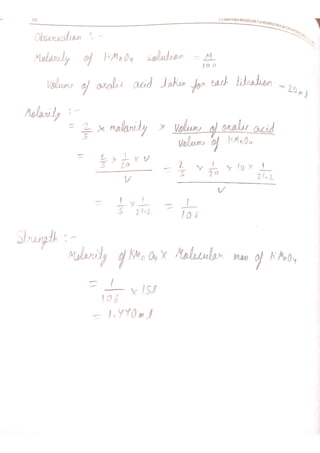 Observation :-
Molarity of KMnO4 solution = M/100
Volume of oxalic acid taken for each titration = 20 ml
Molarity :-
= 2/5 x molarity x Volume of oxalic acid / Volume of KMnO4
= 2/5 x 1/20 x V / V = 2/5 x 1/20 x 10 x 1/21.2 / V
= 1/5 x 1/21.2 = 1/106
Strength :-
Molarity of KMnO4 X Molecular mass of KMnO4
= 1/106 x 158
= 1.490 ml